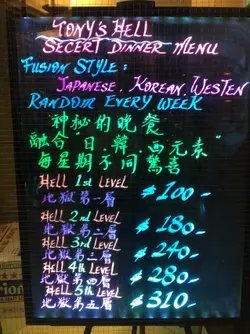 TONY'S HELL
SECERT DINNER MENU
FUSION STYLE:
JAPANESE, KOREAN, WESTEN
RANDOM EVERY WEEK
"神秘的晚餐
融合"日,韓,西元素"
每星期不同驚喜"
HELL 1st LEVEL
地獄第一層 $100-
HELL 2nd LEVEL
地獄第二層 $180-
HELL 3rd LEVEL
地獄第三層 $240-
HELL 4th LEVEL
地獄第四層 $280-
HELL 5th LEVEL
地獄第五層 $310-